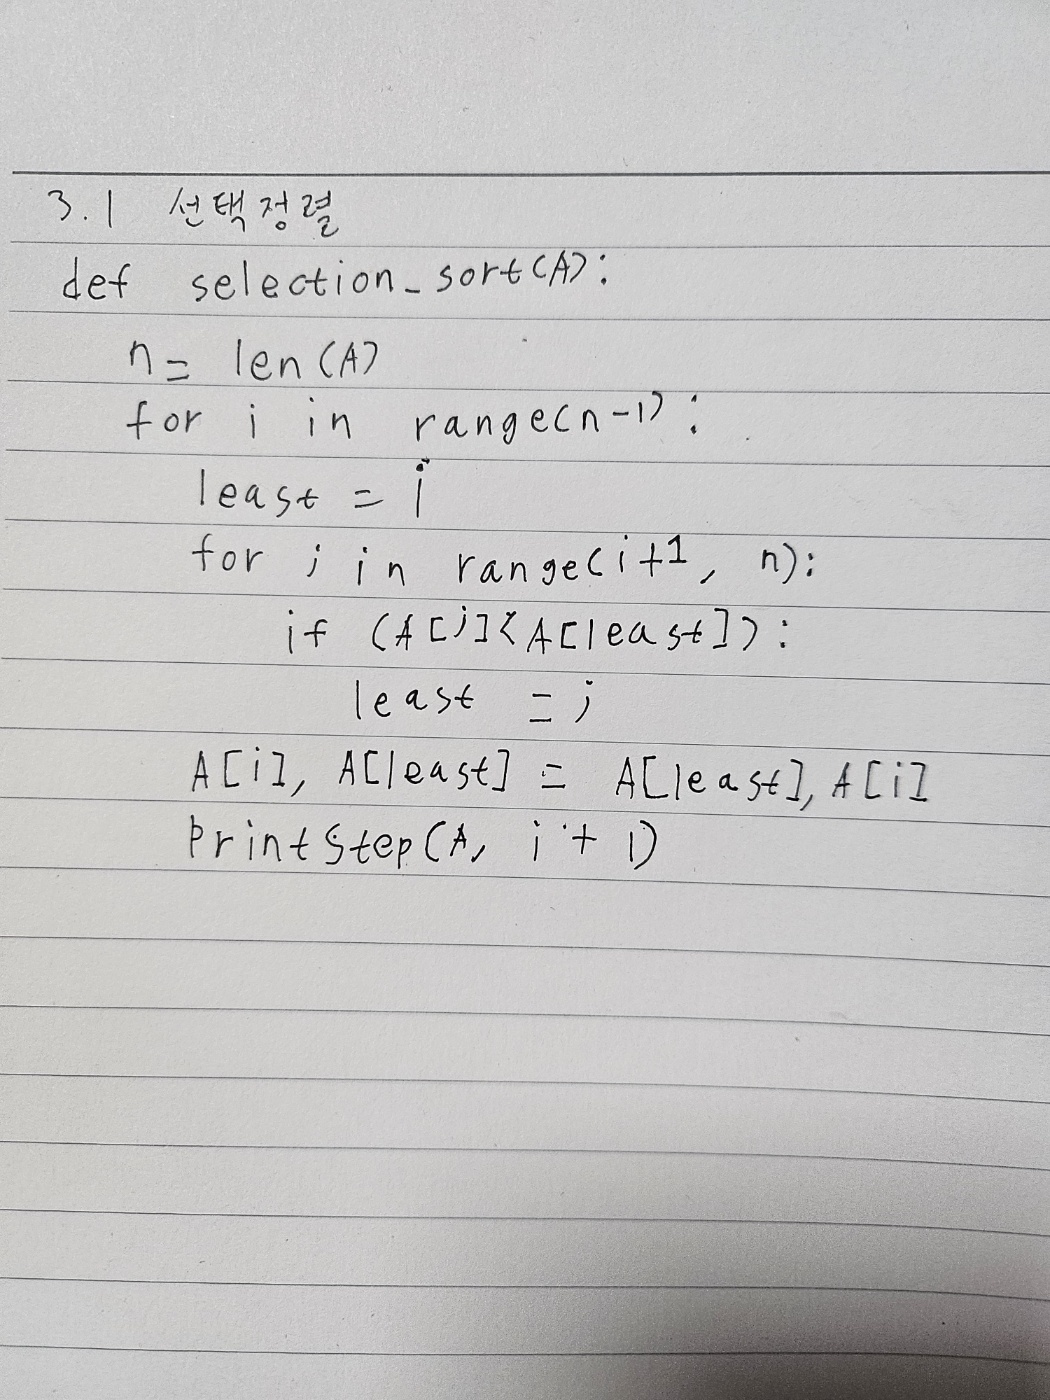 3.1 선택정렬
def selection_sort(A):
n = len(A)
for i in range(n-1):
least = i
for j in range(i+1, n):
if (A[j]<A[least]):
least = j
A[i], A[least] = A[least], A[i]
printStep(A, i + 1)